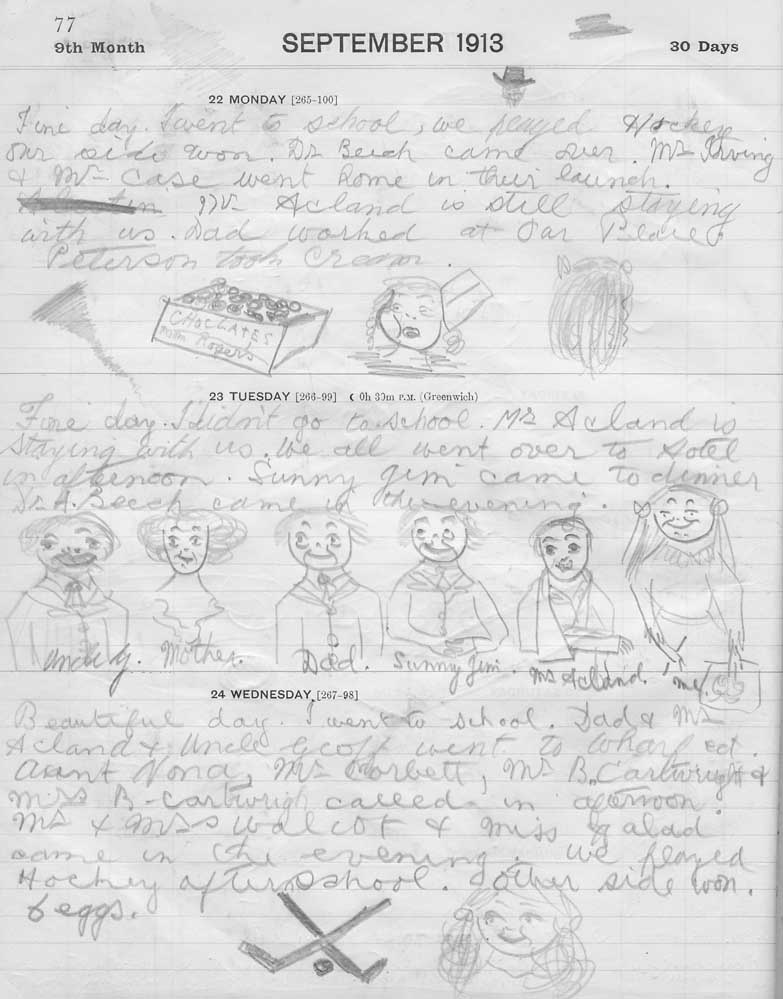 77
9th Month
SEPTEMBER 1913
30 Days
22 MONDAY [265-100]
Fine day. I went to school, we played Hockey
our side won. Dr Beech came over. Mr Irving
& Mr Case went home in their launch.
Mr Acland is still staying
with us. Dad worked at Par Place
Peterson took cream.
CHOCLATES
from Rogers
23 TUESDAY [266-99] ☾ 0h 39m P.M. (Greenwich)
Fine day. I didn't go to school. Mr Acland is
staying with us. We all went over to Hotel
in afternoon. Sunny Jim came to dinner
Dr. A. Beech came in the evening.
Uncle G. Mother. Dad. Sunny Jim. Mr Acland. me.
24 WEDNESDAY [267-98]
Beautiful day. I went to school. Dad & Mr
Acland & Uncle Geoff went to Wharf ed.
Aunt Nona, Mr Corbett, Mr B. Cartwright &
Miss B-Cartwrigh called in afternoon.
Mr & Mrs Walcot & Miss
came in the evening. We played
Hockey after school. other side won.
6 eggs.